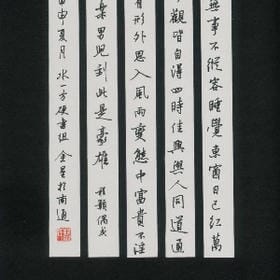 無事不從容睡覺東窗日已紅萬
觀皆自得四時佳興與人同道通
有形外思入風雨變態中富貴不淫
樂男兒到此是豪雄 程顥偶成
申夏月 水一方硬書組 金星於南通